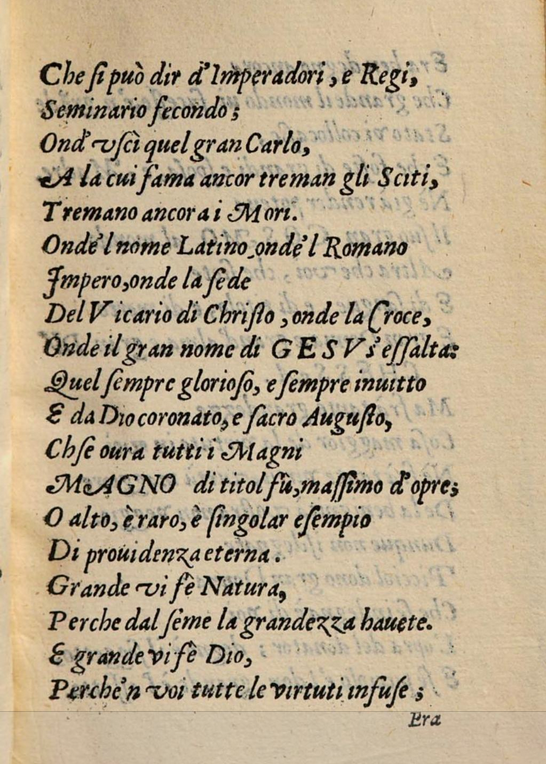 Che ſi può dir d'Imperadori, e Regi,
Seminario fecondo;
Ond' vſcì quel gran Carlo,
A la cui fama ancor treman gli Sciti,
Tremano ancora i Mori.
Onde'l nome Latino, onde'l Romano
Impero, onde la ſede
Del Vicario di Chriſto, onde la Croce,
Onde il gran nome di GESV s'eſſalta:
Quel ſempre glorioſo, e ſempre inuitto
E da Dio coronato, e ſacro Auguſto,
Chſe oura tutti i Magni
MAGNO di titol fù, maſſimo d'opre;
O alto, è raro, è ſingolar eſempio
Di prouidenza eterna.
Grande vi fè Natura,
Perche dal ſeme la grandezza hauete.
E grande vi fè Dio,
Perche'n voi tutte le virtuti infuſe;
Era